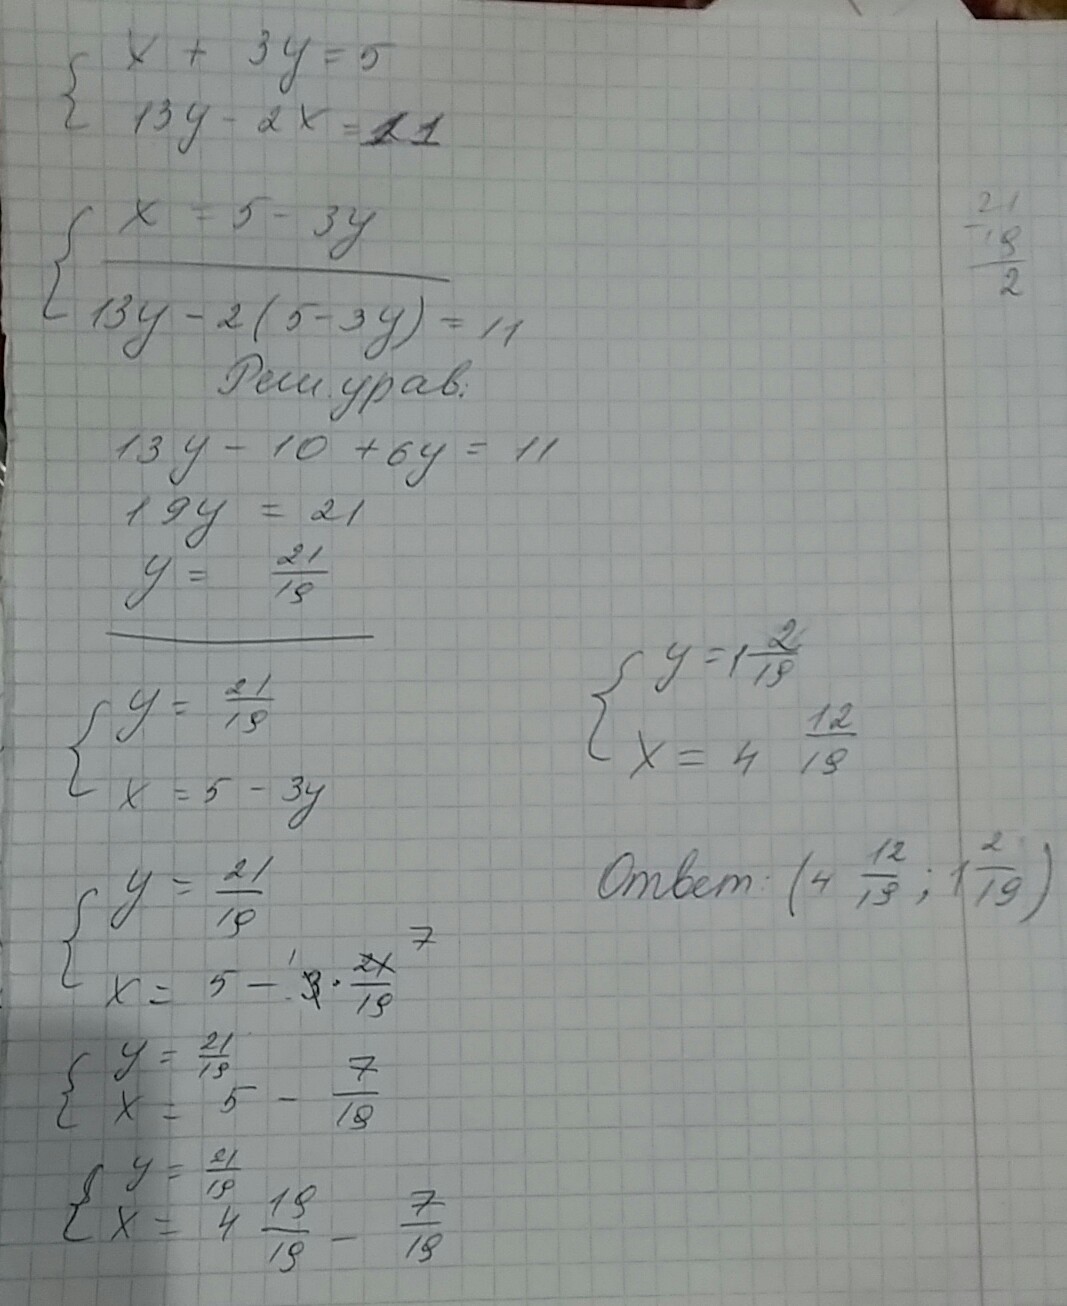 x + 3y = 5
13y - 2x = 11
x = 5 - 3y
13y - 2(5 - 3y) = 11
Реш. урав:
13y - 10 + 6y = 11
19y = 21
y = 21/19
y = 21/19
x = 5 - 3y
y = 21/19
x = 5 - 3 · 21/19
1
7
y = 21/19
x = 5 - 7/19
y = 21/19
x = 4 19/19 - 7/19
21
- 19
2
y = 1 2/19
x = 4 12/19
Ответ: (4 12/19 ; 1 2/19)